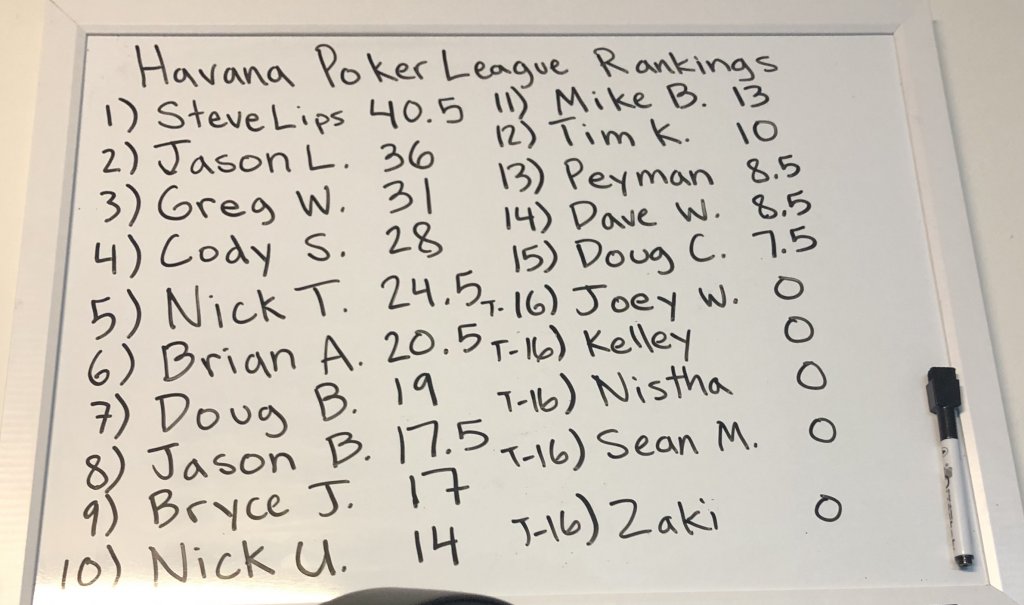 Havana Poker League Rankings
1) Steve Lips 40.5
2) Jason L. 36
3) Greg W. 31
4) Cody S. 28
5) Nick T. 24.5
6) Brian A. 20.5
7) Doug B. 19
8) Jason B. 17.5
9) Bryce J. 17
10) Nick U. 14
11) Mike B. 13
12) Tim K. 10
13) Peyman 8.5
14) Dave W. 8.5
15) Doug C. 7.5
T-16) Joey W. 0
T-16) Kelley 0
T-16) Nistha 0
T-16) Sean M. 0
T-16) Zaki 0